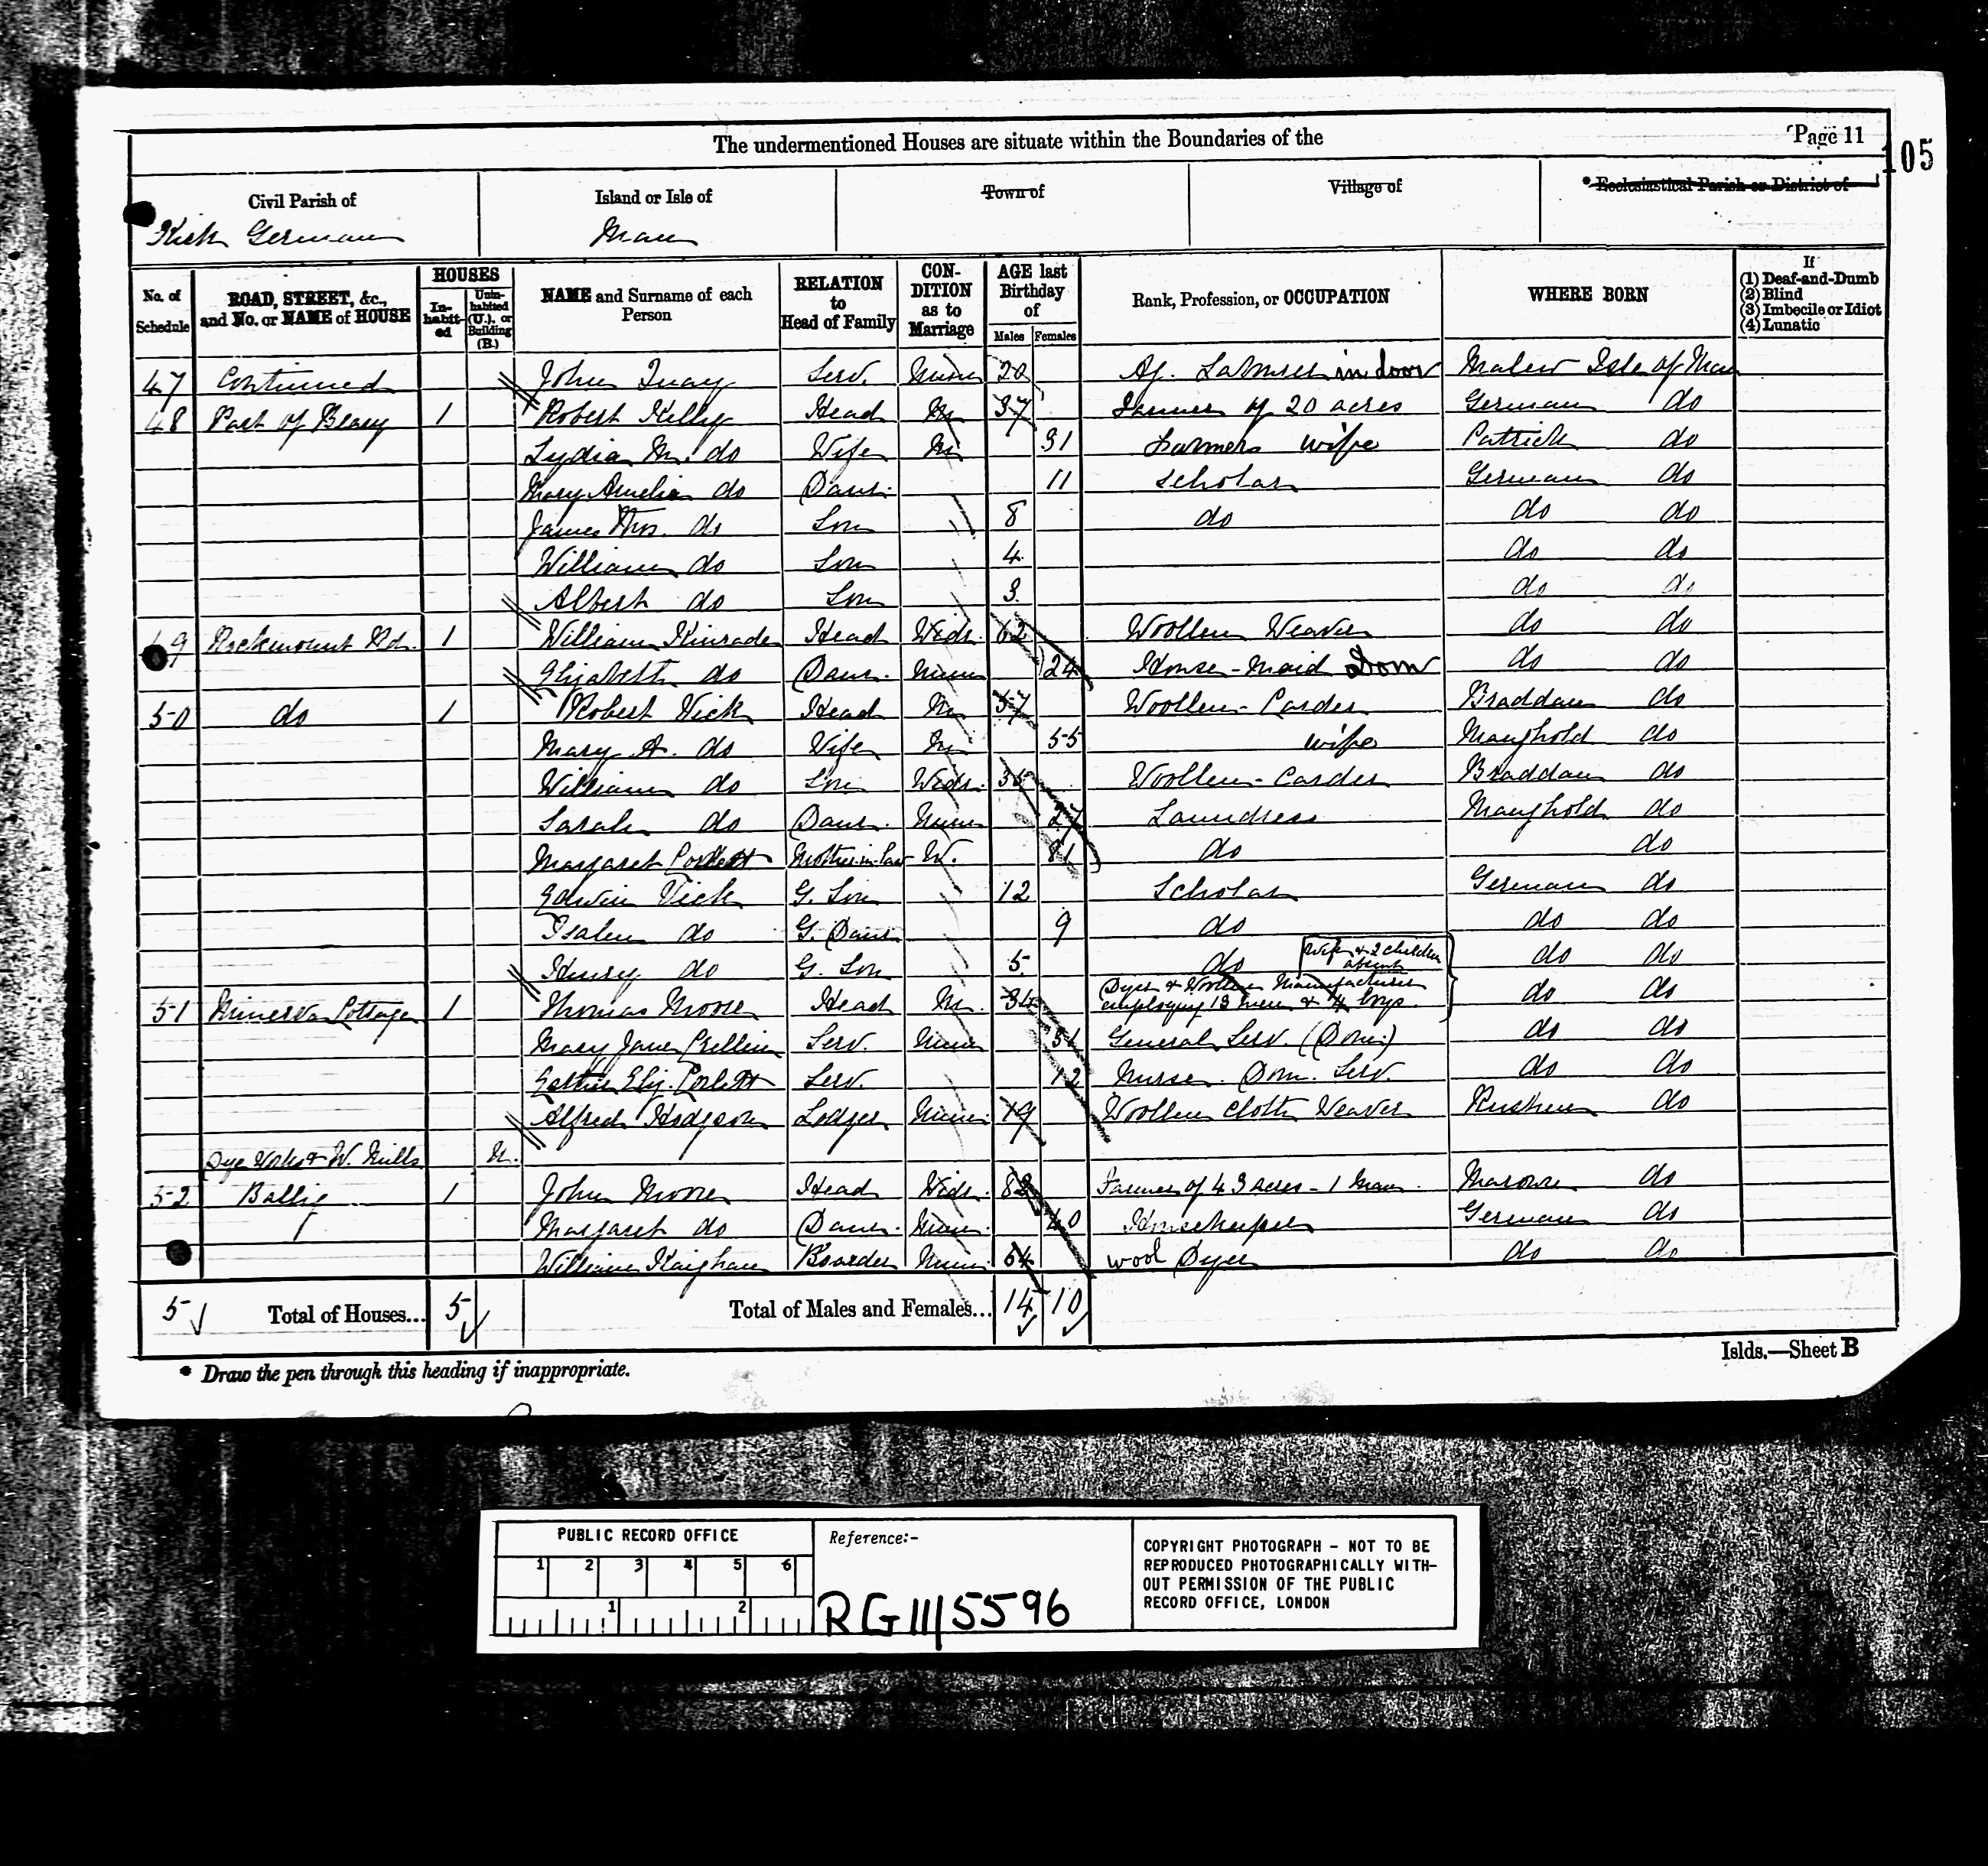 The undermentioned Houses are situate within the Boundaries of the
Page 11
105
Civil Parish of
Kirk German
Island or Isle of
Man
Town of
Village of
* Ecclesiastical Parish or District of
No. of Schedule
ROAD, STREET, &c., and No. or NAME of HOUSE
HOUSES
In-habit-ed
Unin-habited (U.), or Building (B.)
NAME and Surname of each Person
RELATION to Head of Family
CON-DITION as to Marriage
AGE last Birthday of
Males Females
Rank, Profession, or OCCUPATION
WHERE BORN
If
(1) Deaf-and-Dumb
(2) Blind
(3) Imbecile or Idiot
(4) Lunatic
47 Continued John Quay Serv. Unm 20 Ag. Labourer indoor Malew Isle of Man
48 Part of Beary 1 Robert Kelly Head M 37 Farmer of 20 acres German do
Lydia M. do Wife M 31 Farmers wife Patrick do
Mary Amelia do Daur. 11 Scholar German do
James Thos. do Son 8 do do do
William do Son 4 do do
Albert do Son 3 do do
49 Rockmount Rd. 1 William Kinrade Head Widr. 62 Woollen Weaver do do
Elizabeth do Daur. Unm 24 House-Maid Dom do do
50 do 1 Robert Vick Head M 57 Woollen-Carder Braddan do
Mary A. do Wife M 55 wife Maughold do
William do Son Widr. 35 Woollen-Carder Braddan do
Sarah do Daur. Unm 27 Laundress Maughold do
Margaret Corlett Mother-in-Law W. 81 do do
Edwin Vick G. Son 12 Scholar German do
do G. Daur 9 do do do
Henry do G. Son 5 do do do
Wife & 2 children absent
51 Minerva Cottage 1 Thomas Moore Head M. 34 Dyer & Woollen Manufacturer employing 13 men & 4 boys. do do
Mary Jane Crellin Serv. Unm General Serv. (Dom.) do do
Esther Eliz. Corlett Serv. 12 Nurse. Dom. Serv. do do
Alfred Hodgson Lodger Unm. 19 Woollen Cloth Weaver Rushen do
Dye Works & W. Mills U.
52 Ballig 1 John Moore Head Widr. Farmer of 43 acres - 1 Man. Marown do
Margaret do Daur. Unm. 40 Housekeeper German do
William Kaighan Boarder Unm. 64 wool Dyer do do
5 Total of Houses... 5 Total of Males and Females... 14 10
Islds.—Sheet B
* Draw the pen through this heading if inappropriate.
PUBLIC RECORD OFFICE
1 2 3 4 5 6
1 2
Reference:-
RG 11/5596
COPYRIGHT PHOTOGRAPH - NOT TO BE
REPRODUCED PHOTOGRAPHICALLY WITH-
OUT PERMISSION OF THE PUBLIC
RECORD OFFICE, LONDON